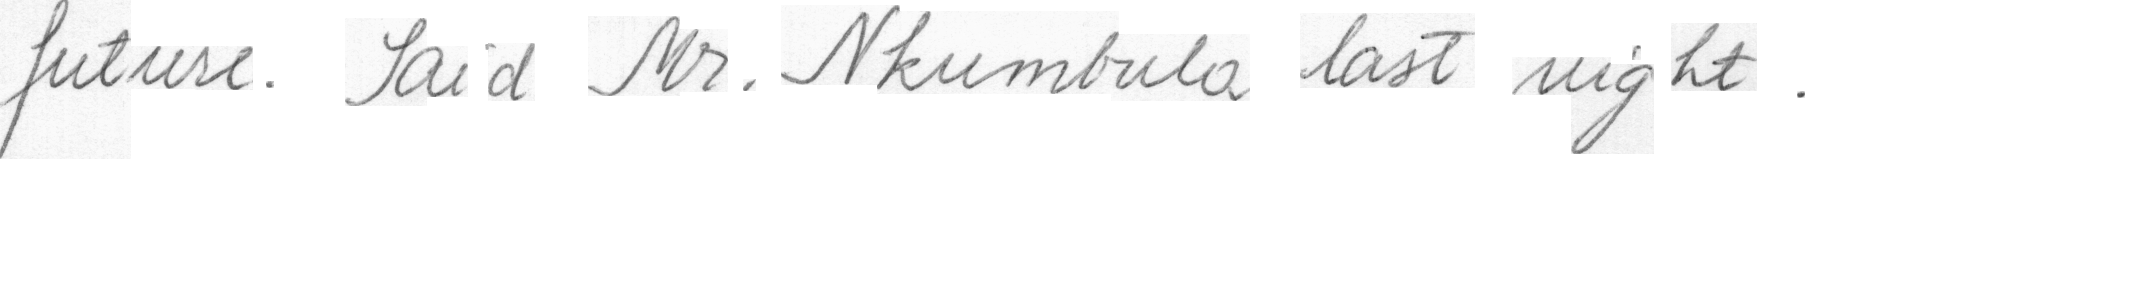 future. Said Mr. Nkumbula last night.